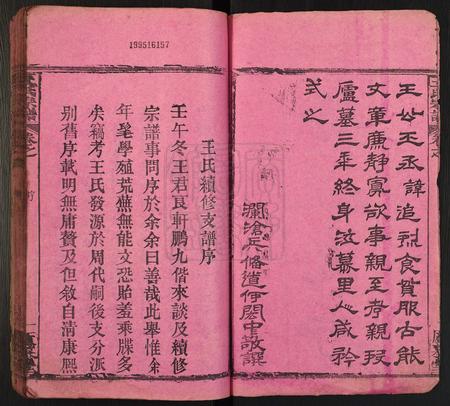 王公玉丞諱追烈食貧服古能
文章廉靜寡欲事親至孝親歿
廬墓三年終身泣慕里人咸矜
式之
瀾滄兵備道伊閬中敬譔
199516157
王氏續修支譜序
壬午冬王君艮軒鵬九偕來談及續修
宗譜事問序於余余曰善哉此舉惟余
年髦學殖荒蕪無能文恐貽羞乘牒多
矣竊考王氏發源於周代嗣後支分派
別舊序載明無庸贅及但敘自清康熙